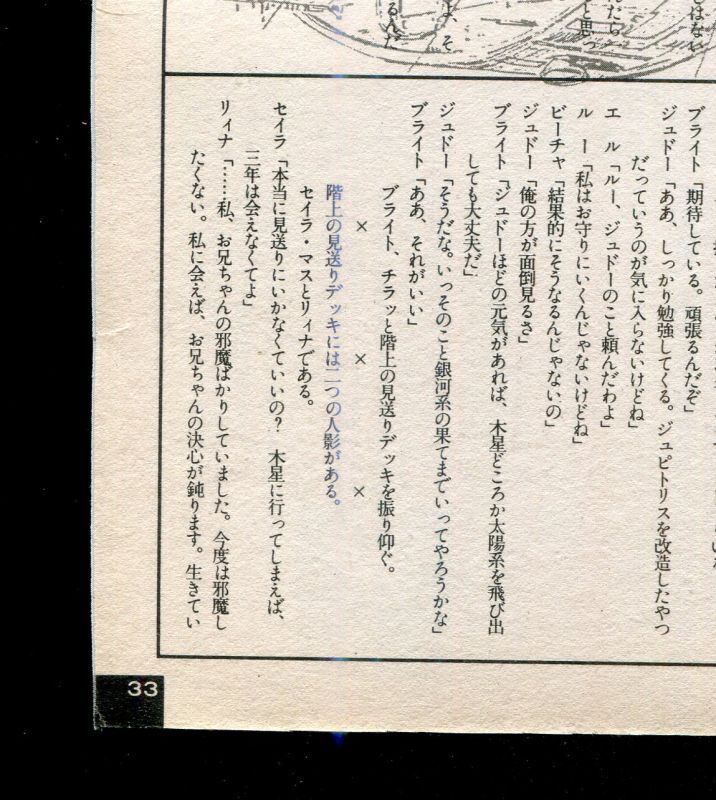 とはない
んだら
と思っ
よ、そ
るんだ
ブライト「期待している。頑張るんだぞ」
ジュドー「ああ、しっかり勉強してくる。ジュピトリスを改造したやつ
だっていうのが気に入らないけどね」
エル「ルー、ジュドーのこと頼んだわよ」
ルー「私はお守りにいくんじゃないけどね」
ビーチャ「結果的にそうなるんじゃないの」
ジュドー「俺の方が面倒見るさ」
ブライト「ジュドーほどの元気があれば、木星どころか太陽系を飛び出
しても大丈夫だ」
ジュドー「そうだな。いっそのこと銀河系の果てまでいってやろうかな」
ブライト「ああ、それがいい」
ブライト、チラッと階上の見送りデッキを振り仰ぐ。
× × ×
階上の見送りデッキには二つの人影がある。
セイラ・マスとリィナである。
セイラ「本当に見送りにいかなくていいの？　木星に行ってしまえば、
三年は会えなくてよ」
リィナ「……私、お兄ちゃんの邪魔ばかりしていました。今度は邪魔し
たくない。私に会えば、お兄ちゃんの決心が鈍ります。生きてい
33